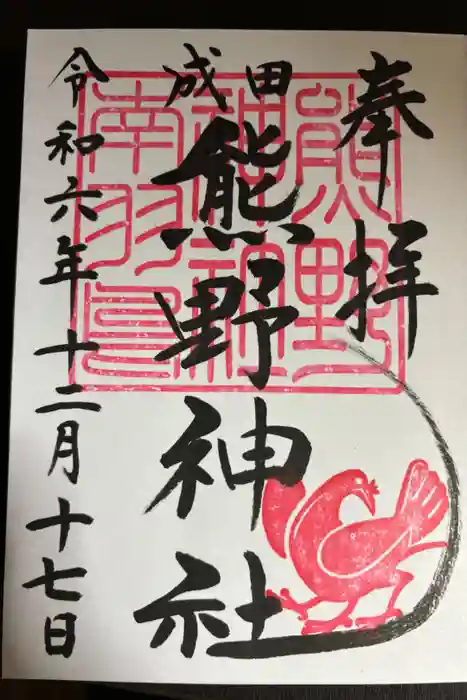 奉拝
成田
熊野神社
令和六年十二月十七日
熊野
神社
南羽鳥